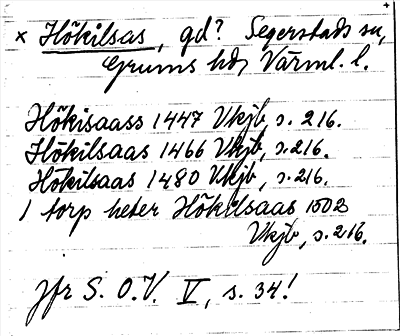 × Hökilsas, gd? Segerstads sn,
Grums hd, Värml. l.
Hökisaass 1447 Vkjb, s. 216.
Hökilsaas 1466 Vkjb, s. 216.
Hökilsaas 1480 Vkjb, s. 216.
1 torp heter Hökilsaas 1502
Vkjb, s. 216.
Jfr S. O. V. V, s. 34!